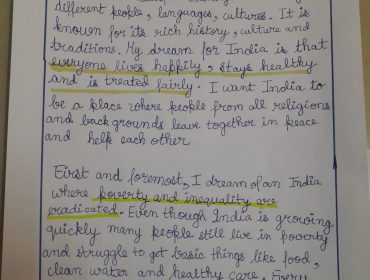 different people, languages, cultures. It is
known for its rich history, culture and
traditions. My dream for India is that
everyone lives happily, stays healthy
and is treated fairly. I want India to
be a place where people from all religions
and back grounds leave together in peace
and help each other
First and foremost, I dream of an India
where poverty and inequality are
eradicated. Even though India is growing
quickly many people still live in poverty
and struggle to get basic things like food,
clean water and healthy care. Every